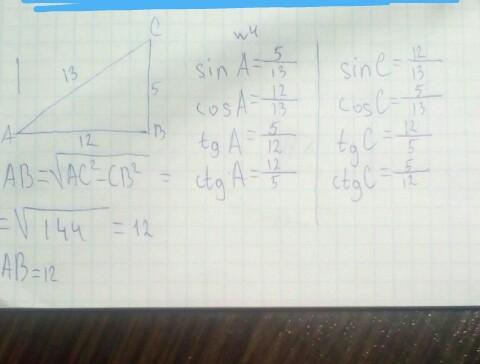 w4
C
13
5
A
12
B
AB=√AC²-CB² =
=√144 = 12
AB=12
sin A=5/13
cos A=12/13
tg A=5/12
ctg A=12/5
sin C=12/13
cos C=5/13
tg C=12/5
ctg C=5/12